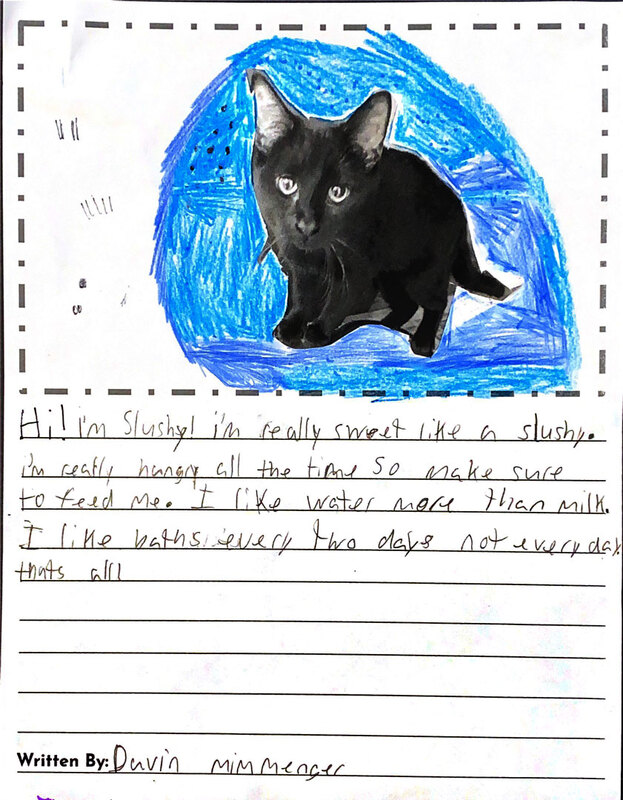 Hi! i'm Slushy! i'm really sweet like a slushy.
i'm really hangry all the time so make sure
to feed me. I like water more than milk.
I like baths every two days not every day.
thats all
Written By: Davin mimmenger